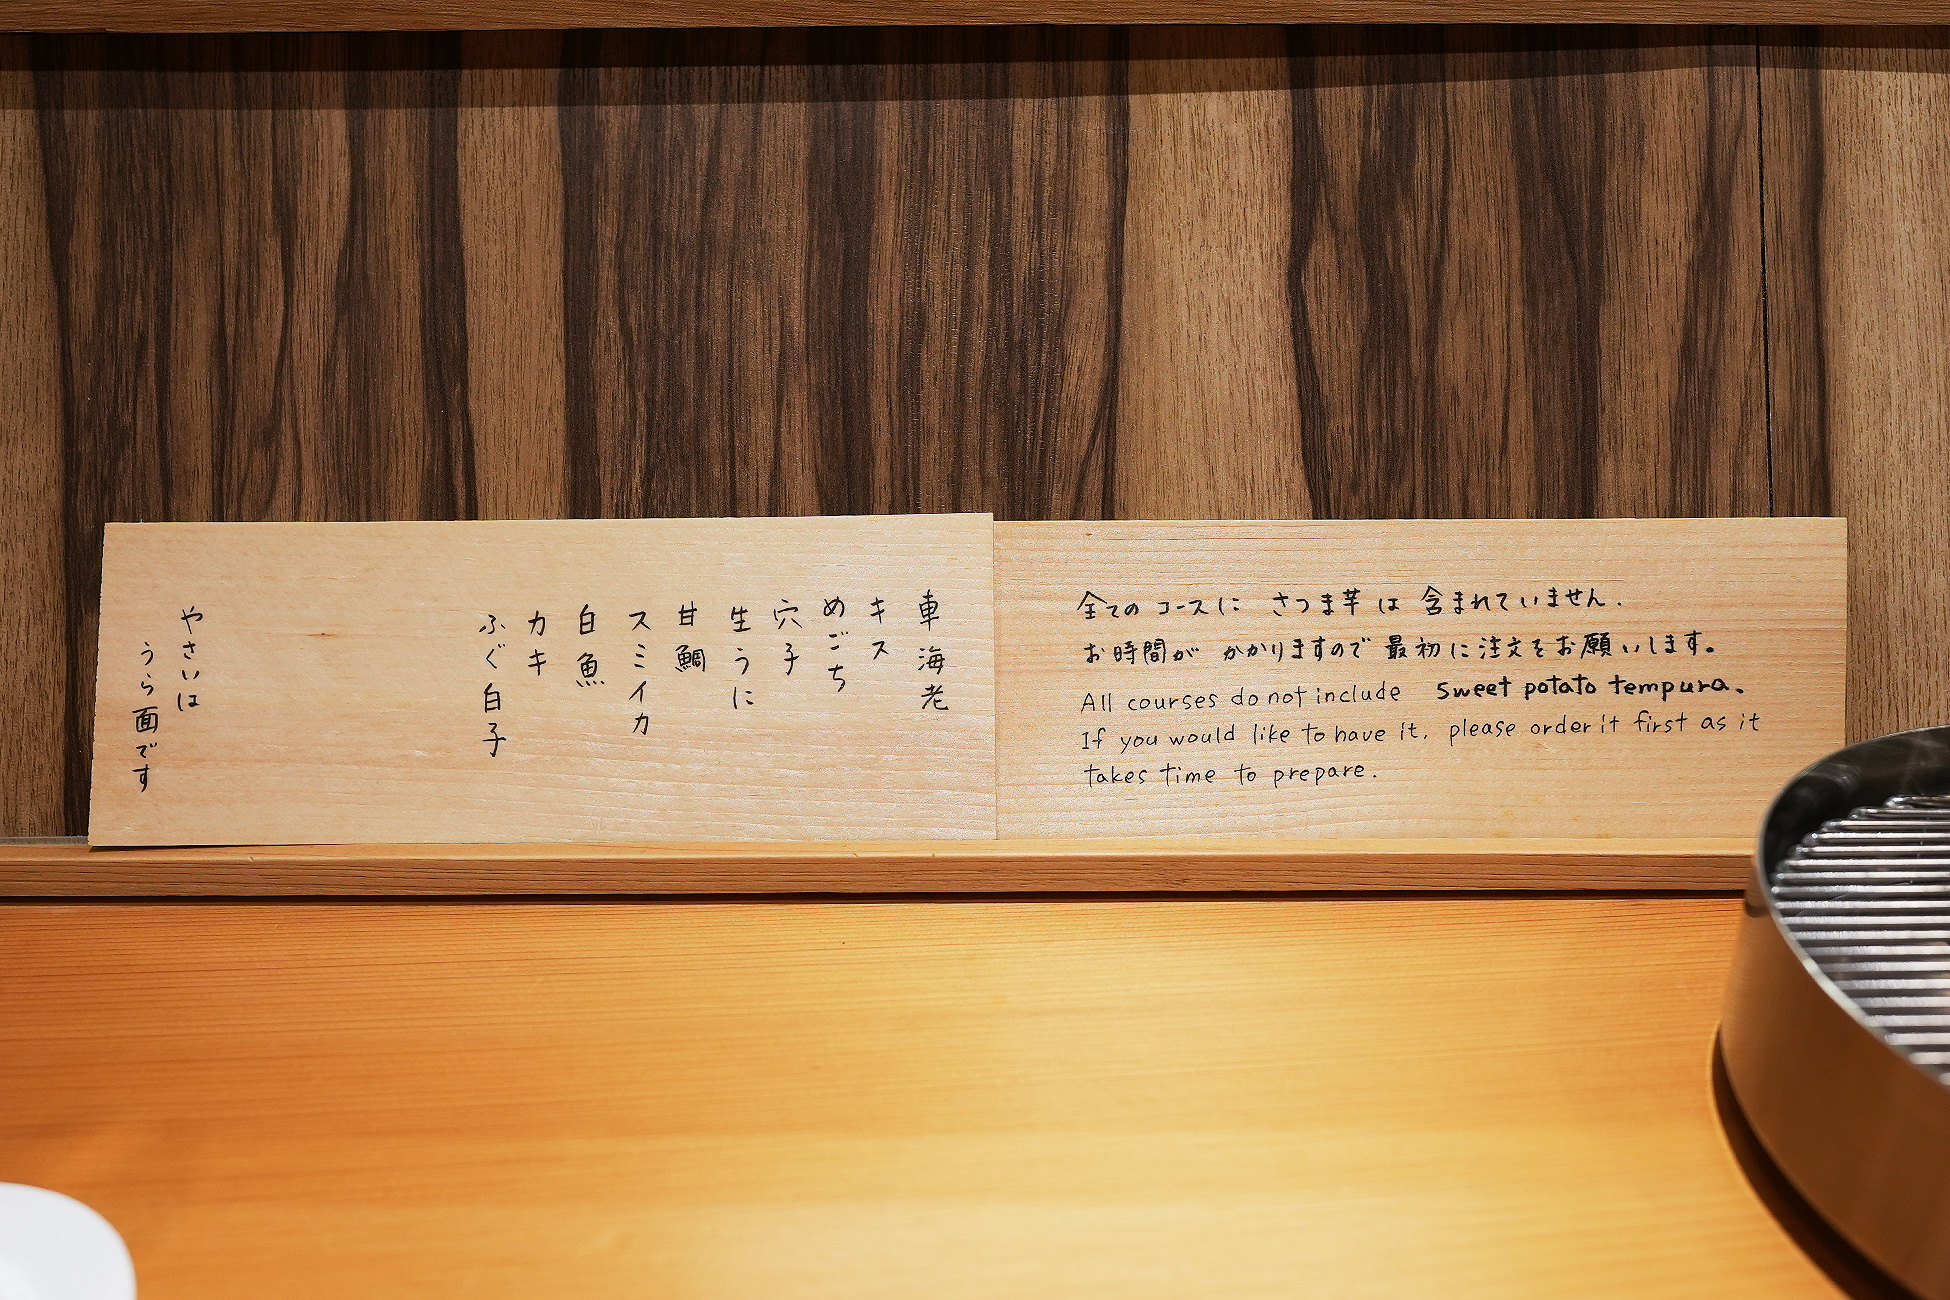 車海老
キス
めごち
穴子
生うに
甘鯛
スミイカ
白魚
カキ
ふぐ白子
やさいは
うら面です
全てのコースに さつま芋は 含まれていません.
お時間が かかりますので 最初に注文をお願いします。
All courses do not include sweet potato tempura.
If you would like to have it, please order it first as it
takes time to prepare.